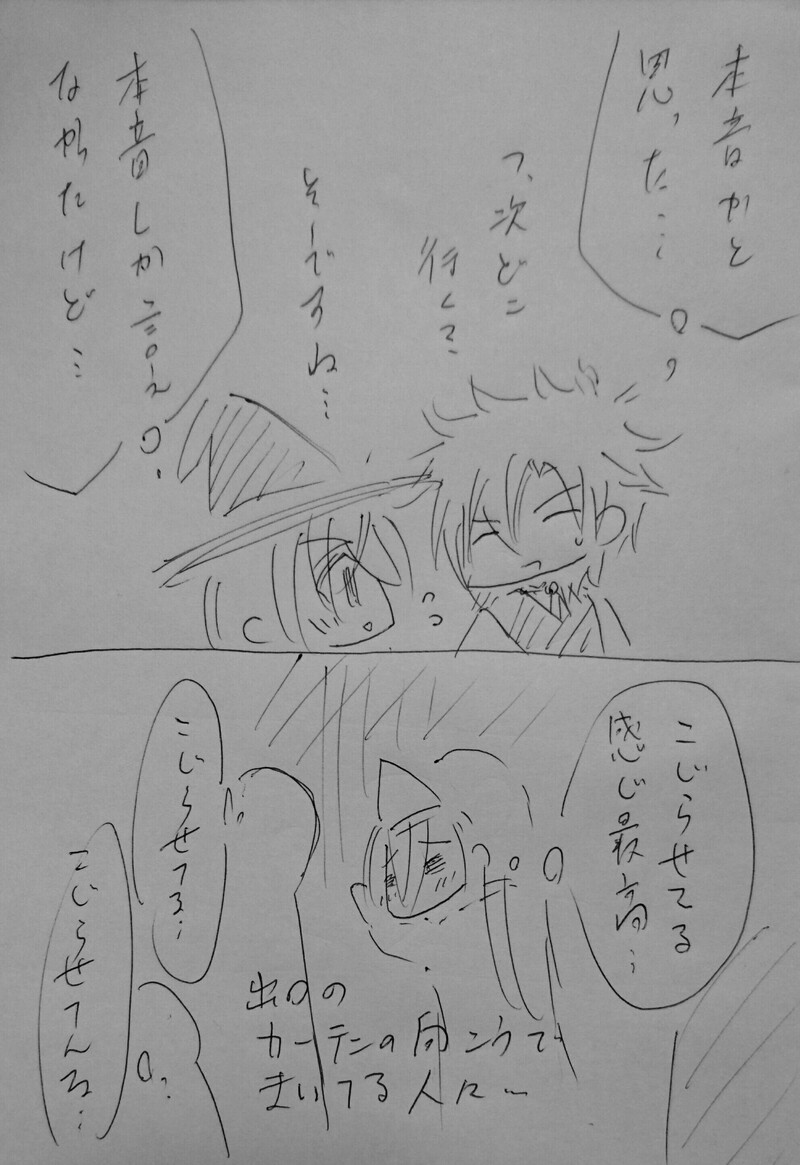 本音かと
思った…
つ、次どこ
行く?
そーですね…
本音しか言え
なかったけど…
こじらせてる
感じ最高…
こじらせてる…
こじらせてんな…
出口の
カーテンの向こうで
まいてる人に～